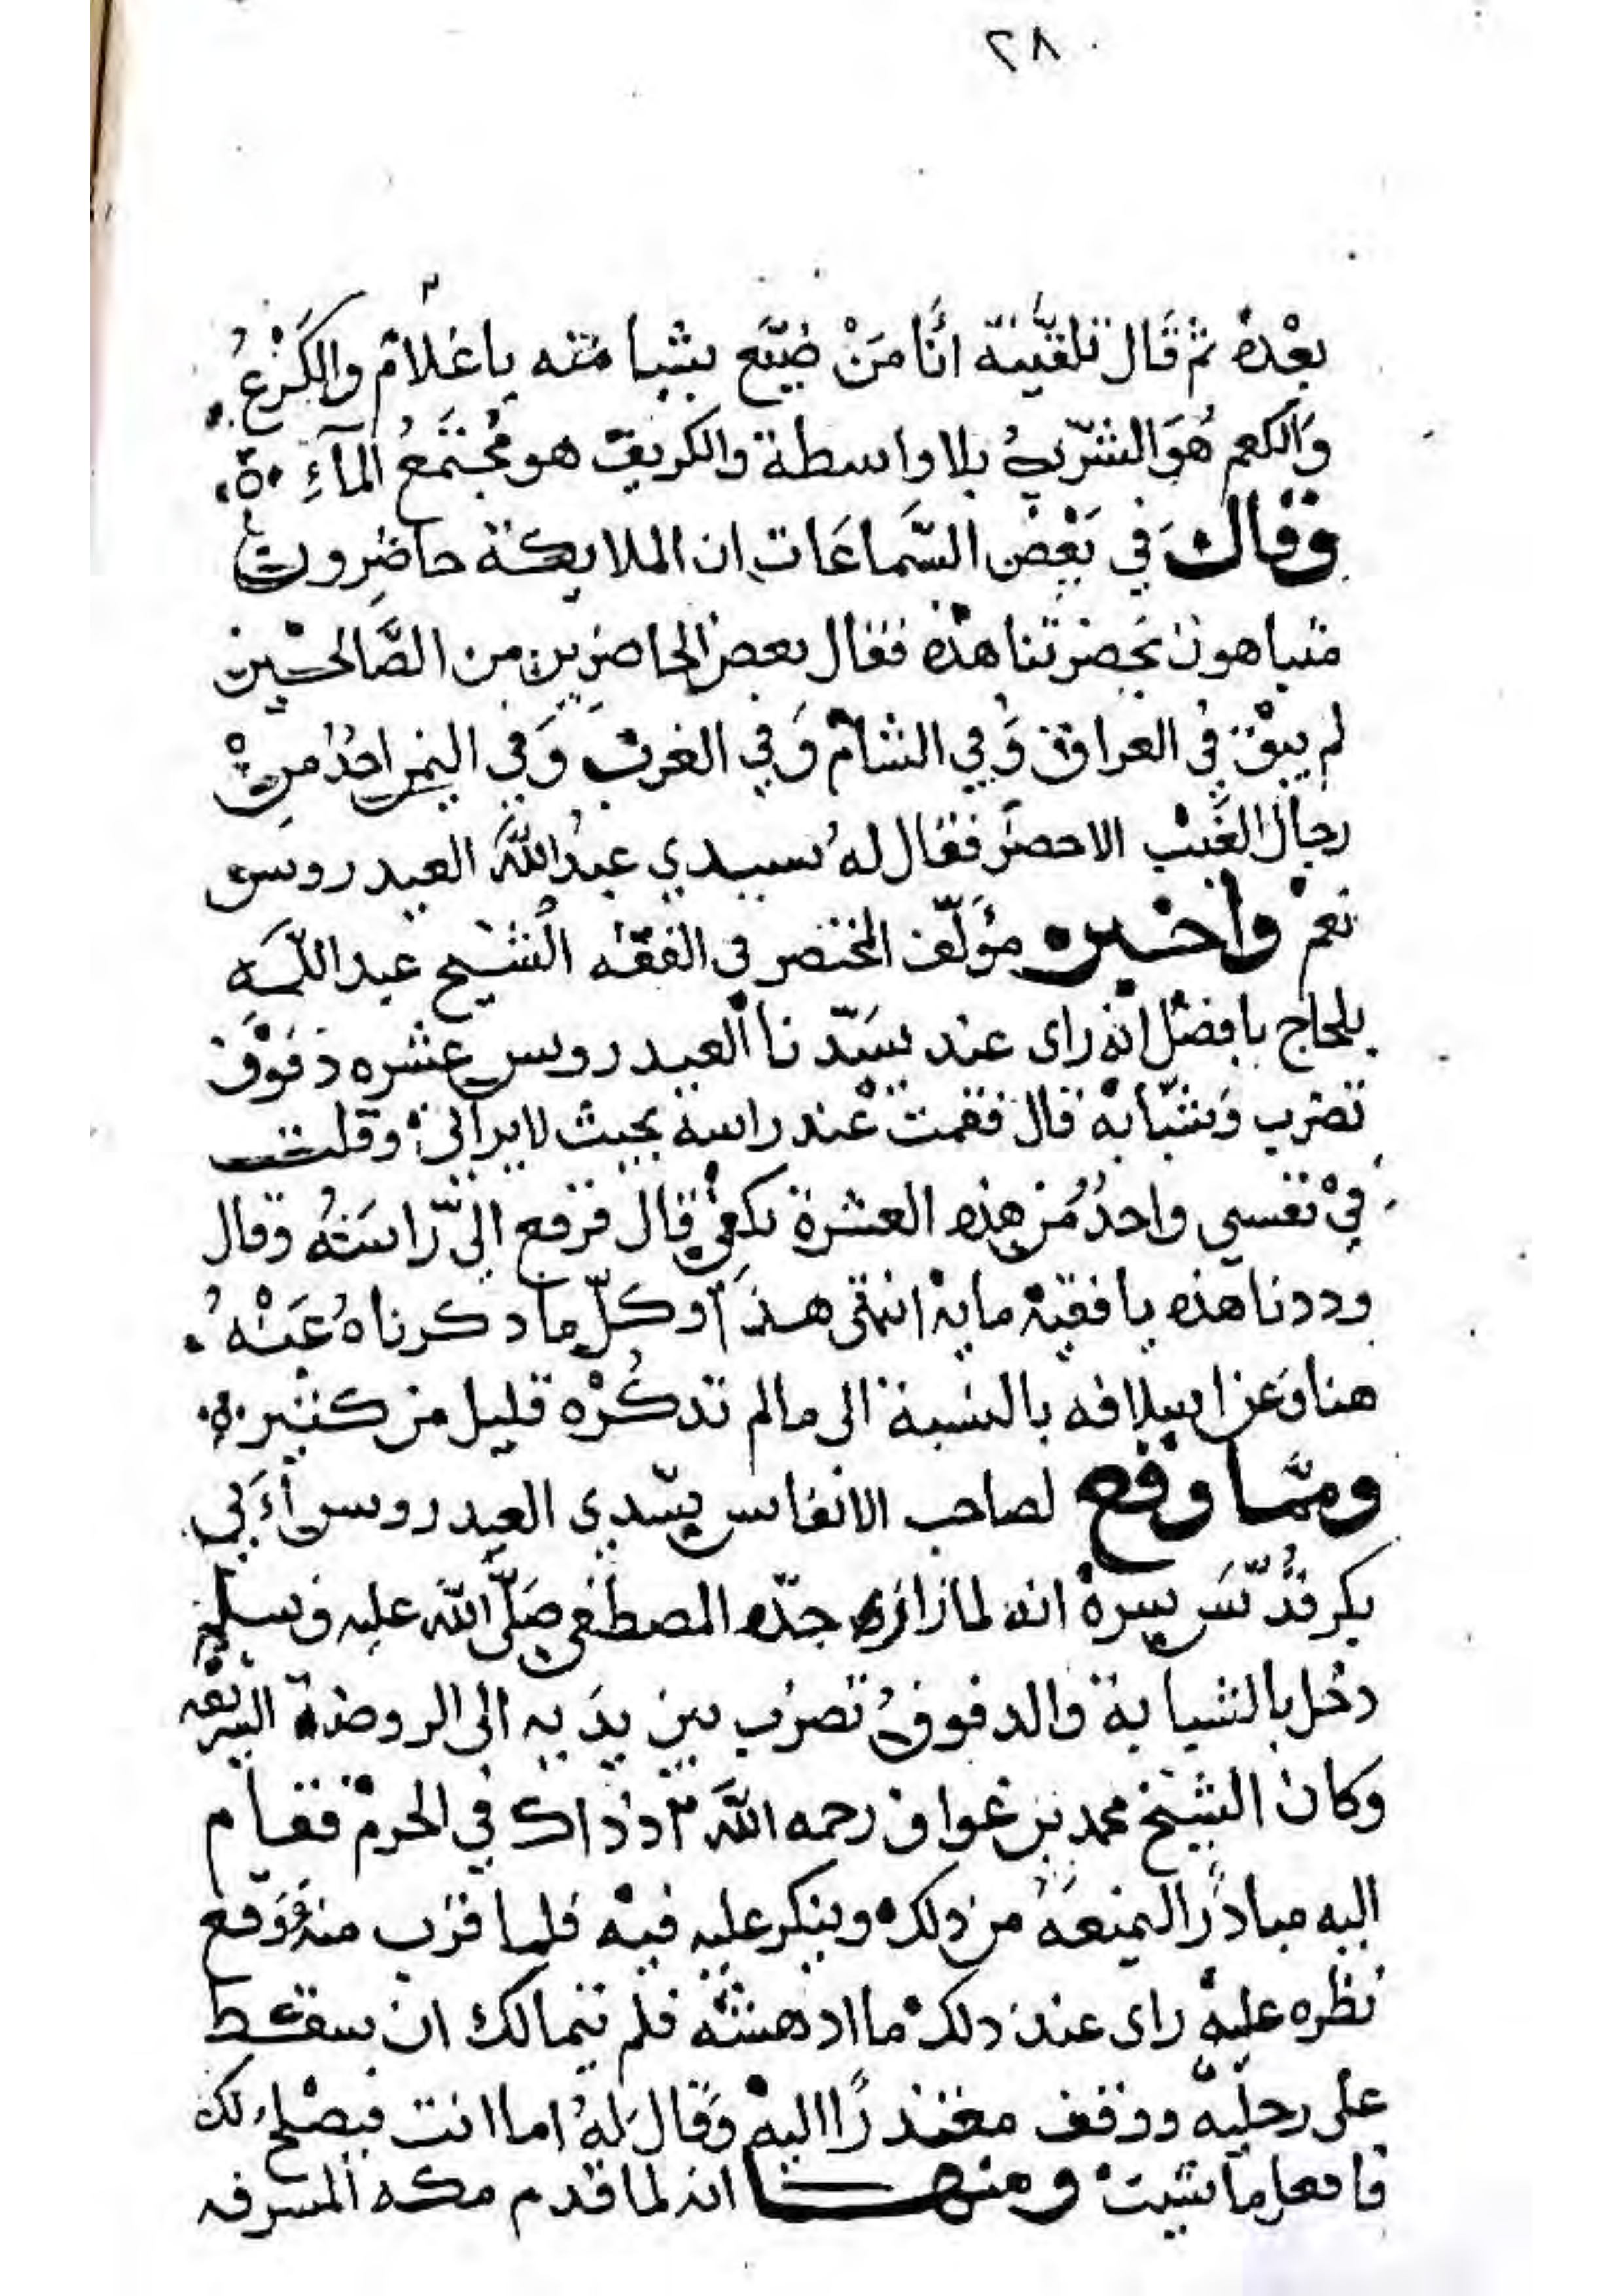 ٢٨
بعْده ثم قَال تلقَّينه انَا مَنْ ضيَّع شيا منه يا غلام والكَرْعُ
وَالكعم هُوَ الشرب بلا واسطة والكريف هو مُجْتَمعُ المآءِ ۰ة۰
وقال في بَعْض السَّماعَات ان الملايكة حاضِرون
متباهون بحضرتنا هذه فقال بعض الحاضرين من الصَّالحين
لم يبْق في العراق وَفي الشام وَفي الغرب وَفي اليمن احدُ من
رجال الغَيْب الا حضر فقال لهُ سيدي عبدُ اللهَ العيدروس
نعم واخبره مؤلّف المختصر في الفقه الشيخ عبد اللّه
بلحاج بافضل انه راى عند سَيّدنا العيدروس عشره دفوْف
تضرب وَشبّابه قال فقمت عْند راسه بحيث لا يراني وقلت
فيْ نفسي واحدُ من هذه العشرة تكفي قال فرفع اليّ رَاسَهُ وقال
وددنا هذه يا فقيه مايه انتهى هذا وكلّ ما دكرناهُ عَنْهُ
هنا وَعن اسلافه بالنسبة الى مالم تدكُرْه قليل من كثير ۰ه۰
وممَّا وقع لصاحب الانفاس سيّدي العيدروس اَبي
بكر قدّسَ سره انه لما زار جدّه المصطفى صَلَّى اللّه عليه وسلم
دخل بالشبابة والدفوفُ تضرب بين يدَيه الى الروضة الشريفه
وكان الشيخ محمد بن عواف رحمه اللهَ ادداك في الحرم فقام
اليه مبادرًا ليمنعَهُ من دلك وينكر عليه فيه فلما قرب منه وَوَقع
نظره عليه راى عند دلك ما ادهشَه فلم يتمالك ان سقط
على رجليه ووقف معتدرًا اليه وَقال لهُ اما انت فيصْلح لك
فافعل ما شيت ومنها انه لما قدم مكه المشرفه